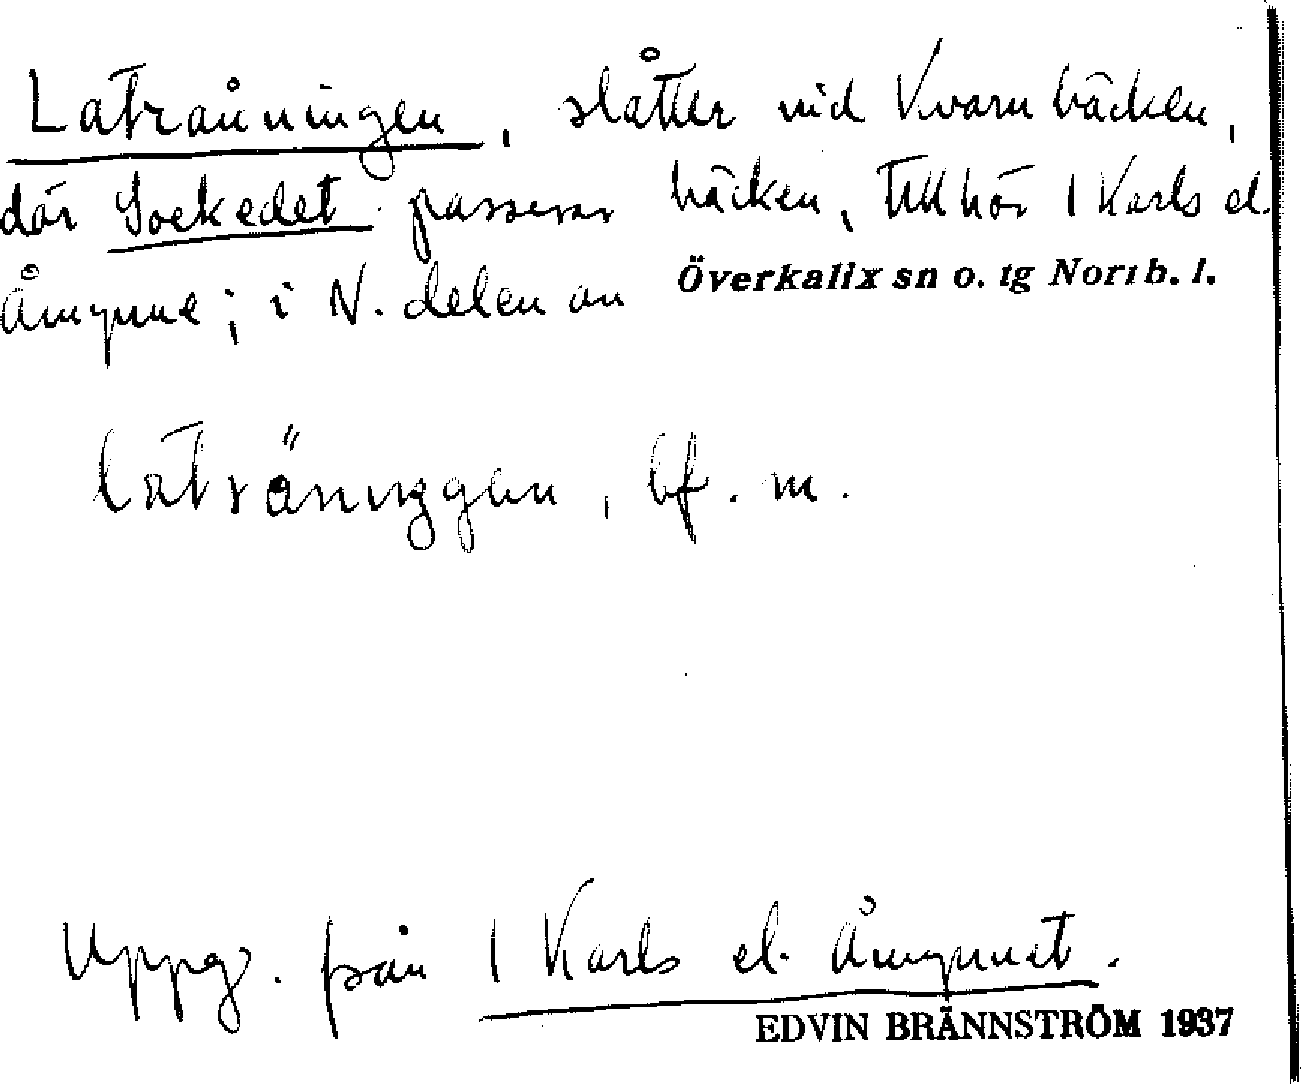 Latråningen, slåtter vid Kvarnbäcken,
där Sockedet passerar bäcken, tillhör 1 Karls el.
Åmynne; i N. delen av Överkalix sn o. tg Norrb. l.
laträninggen, bf. m.
Uppg. från 1 Karls el. Åmynnet.
EDVIN BRÄNNSTRÖM 1937